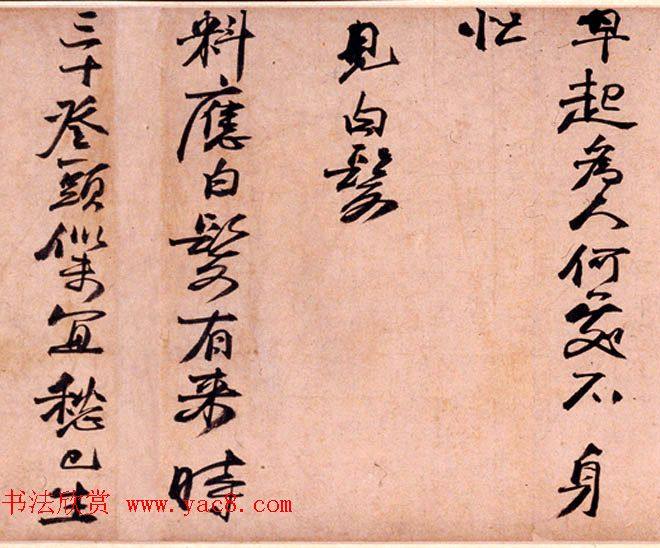 早起為人何義不身
忙
見白髮
料應白髮有来時
三十登頭似未宜愁已生
书法欣赏 www.yac8.com